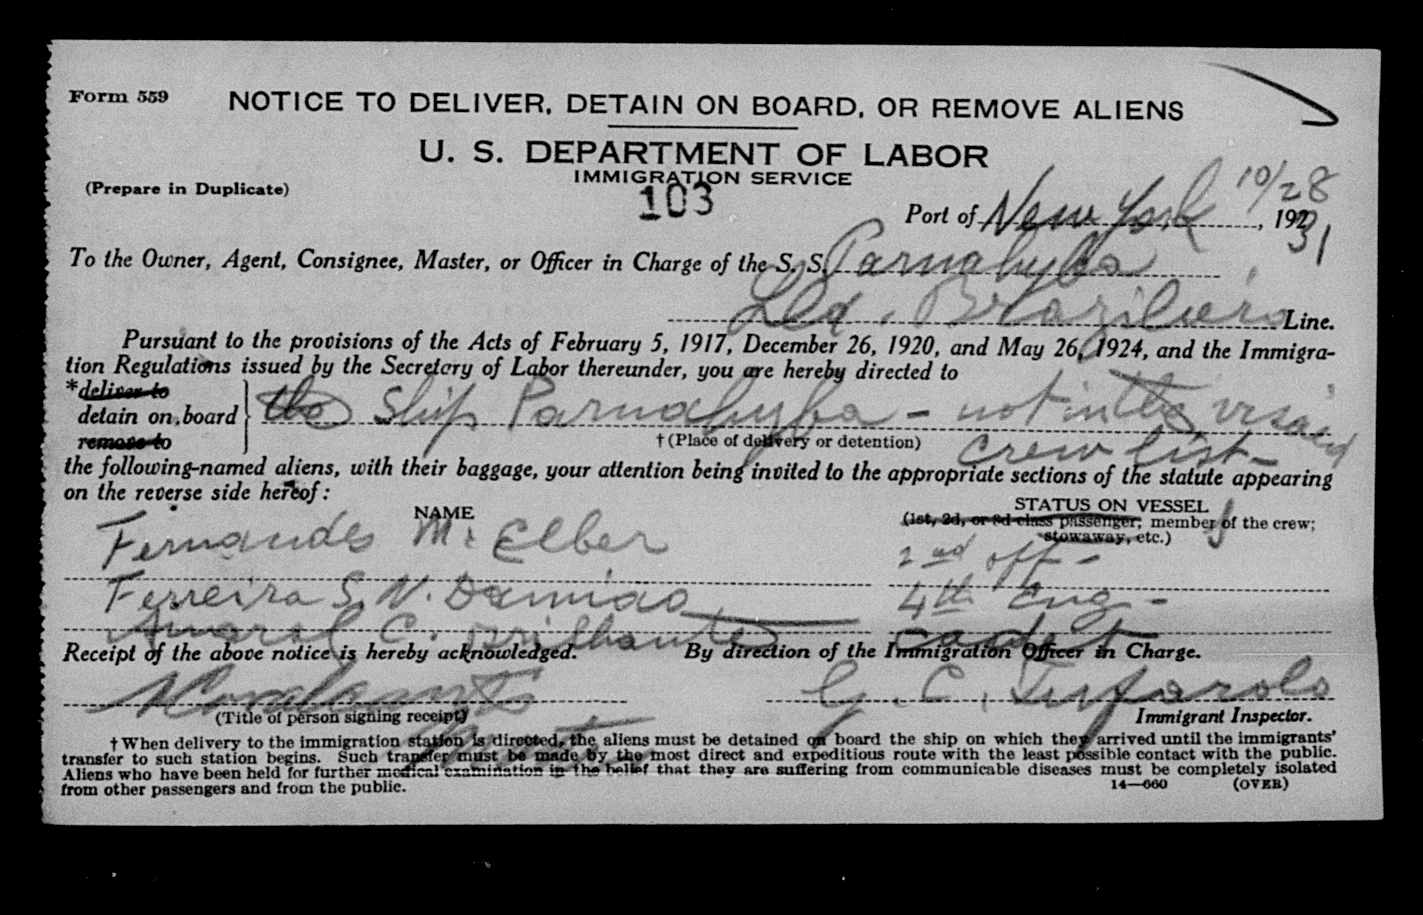 Form 559
NOTICE TO DELIVER, DETAIN ON BOARD, OR REMOVE ALIENS
U. S. DEPARTMENT OF LABOR
IMMIGRATION SERVICE
(Prepare in Duplicate)
103
10/28
Port of New York, 192
31
To the Owner, Agent, Consignee, Master, or Officer in Charge of the S. S. Parnahyba
Brazileiro Line.
Pursuant to the provisions of the Acts of February 5, 1917, December 26, 1920, and May 26, 1924, and the Immigra-
tion Regulations issued by the Secretary of Labor thereunder, you are hereby directed to
*deliver to
detain on board
remove to
the Ship Parnahyba - not in the visaed
†(Place of delivery or detention)
crew list -
the following-named aliens, with their baggage, your attention being invited to the appropriate sections of the statute appearing
on the reverse side hereof:
NAME
STATUS ON VESSEL
(1st, 2d, or 3d class passenger; member of the crew;
stowaway, etc.)
Fernandes M. Elber 2nd off -
Ferreira S. N. Damiao 4th Eng -
Amaral C. Brilhante cadet
Receipt of the above notice is hereby acknowledged. By direction of the Immigration Officer in Charge.
G. C. Tufarolo
(Title of person signing receipt)
Immigrant Inspector.
†When delivery to the immigration station is directed, the aliens must be detained on board the ship on which they arrived until the immigrants'
transfer to such station begins. Such transfer must be made by the most direct and expeditious route with the least possible contact with the public.
Aliens who have been held for further medical examination in the belief that they are suffering from communicable diseases must be completely isolated
from other passengers and from the public.
14—660 (OVER)